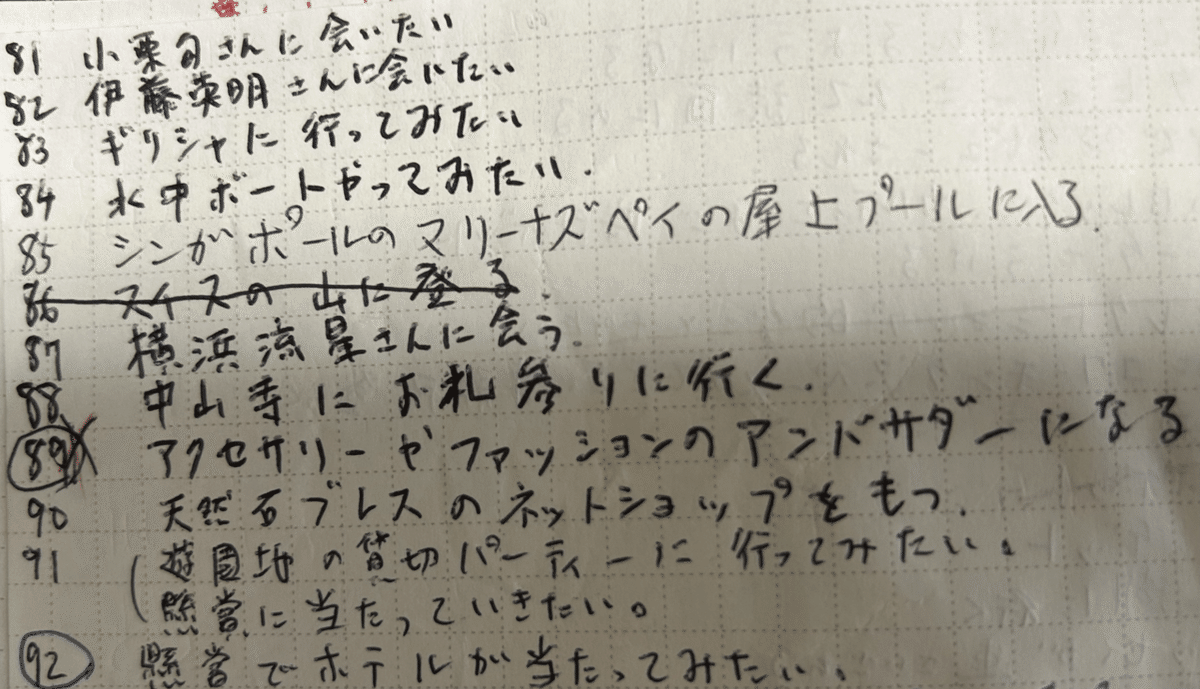 81 小栗旬さんに会いたい
82 伊藤英明さんに会いたい
83 ギリシャに行ってみたい
84 水中ボートやってみたい.
85 シンガポールのマリーナズベイの屋上プールに入る.
86 スイスの山に登る.
87 横浜流星さんに会う.
88 中山寺にお札参りに行く.
89 アクセサリーやファッションのアンバサダーになる
90 天然石ブレスのネットショップをもつ.
91 (遊園地の貸切パーティーに行ってみたい。
懸賞に当たっていきたい。
92 懸賞でホテルが当たってみたい.